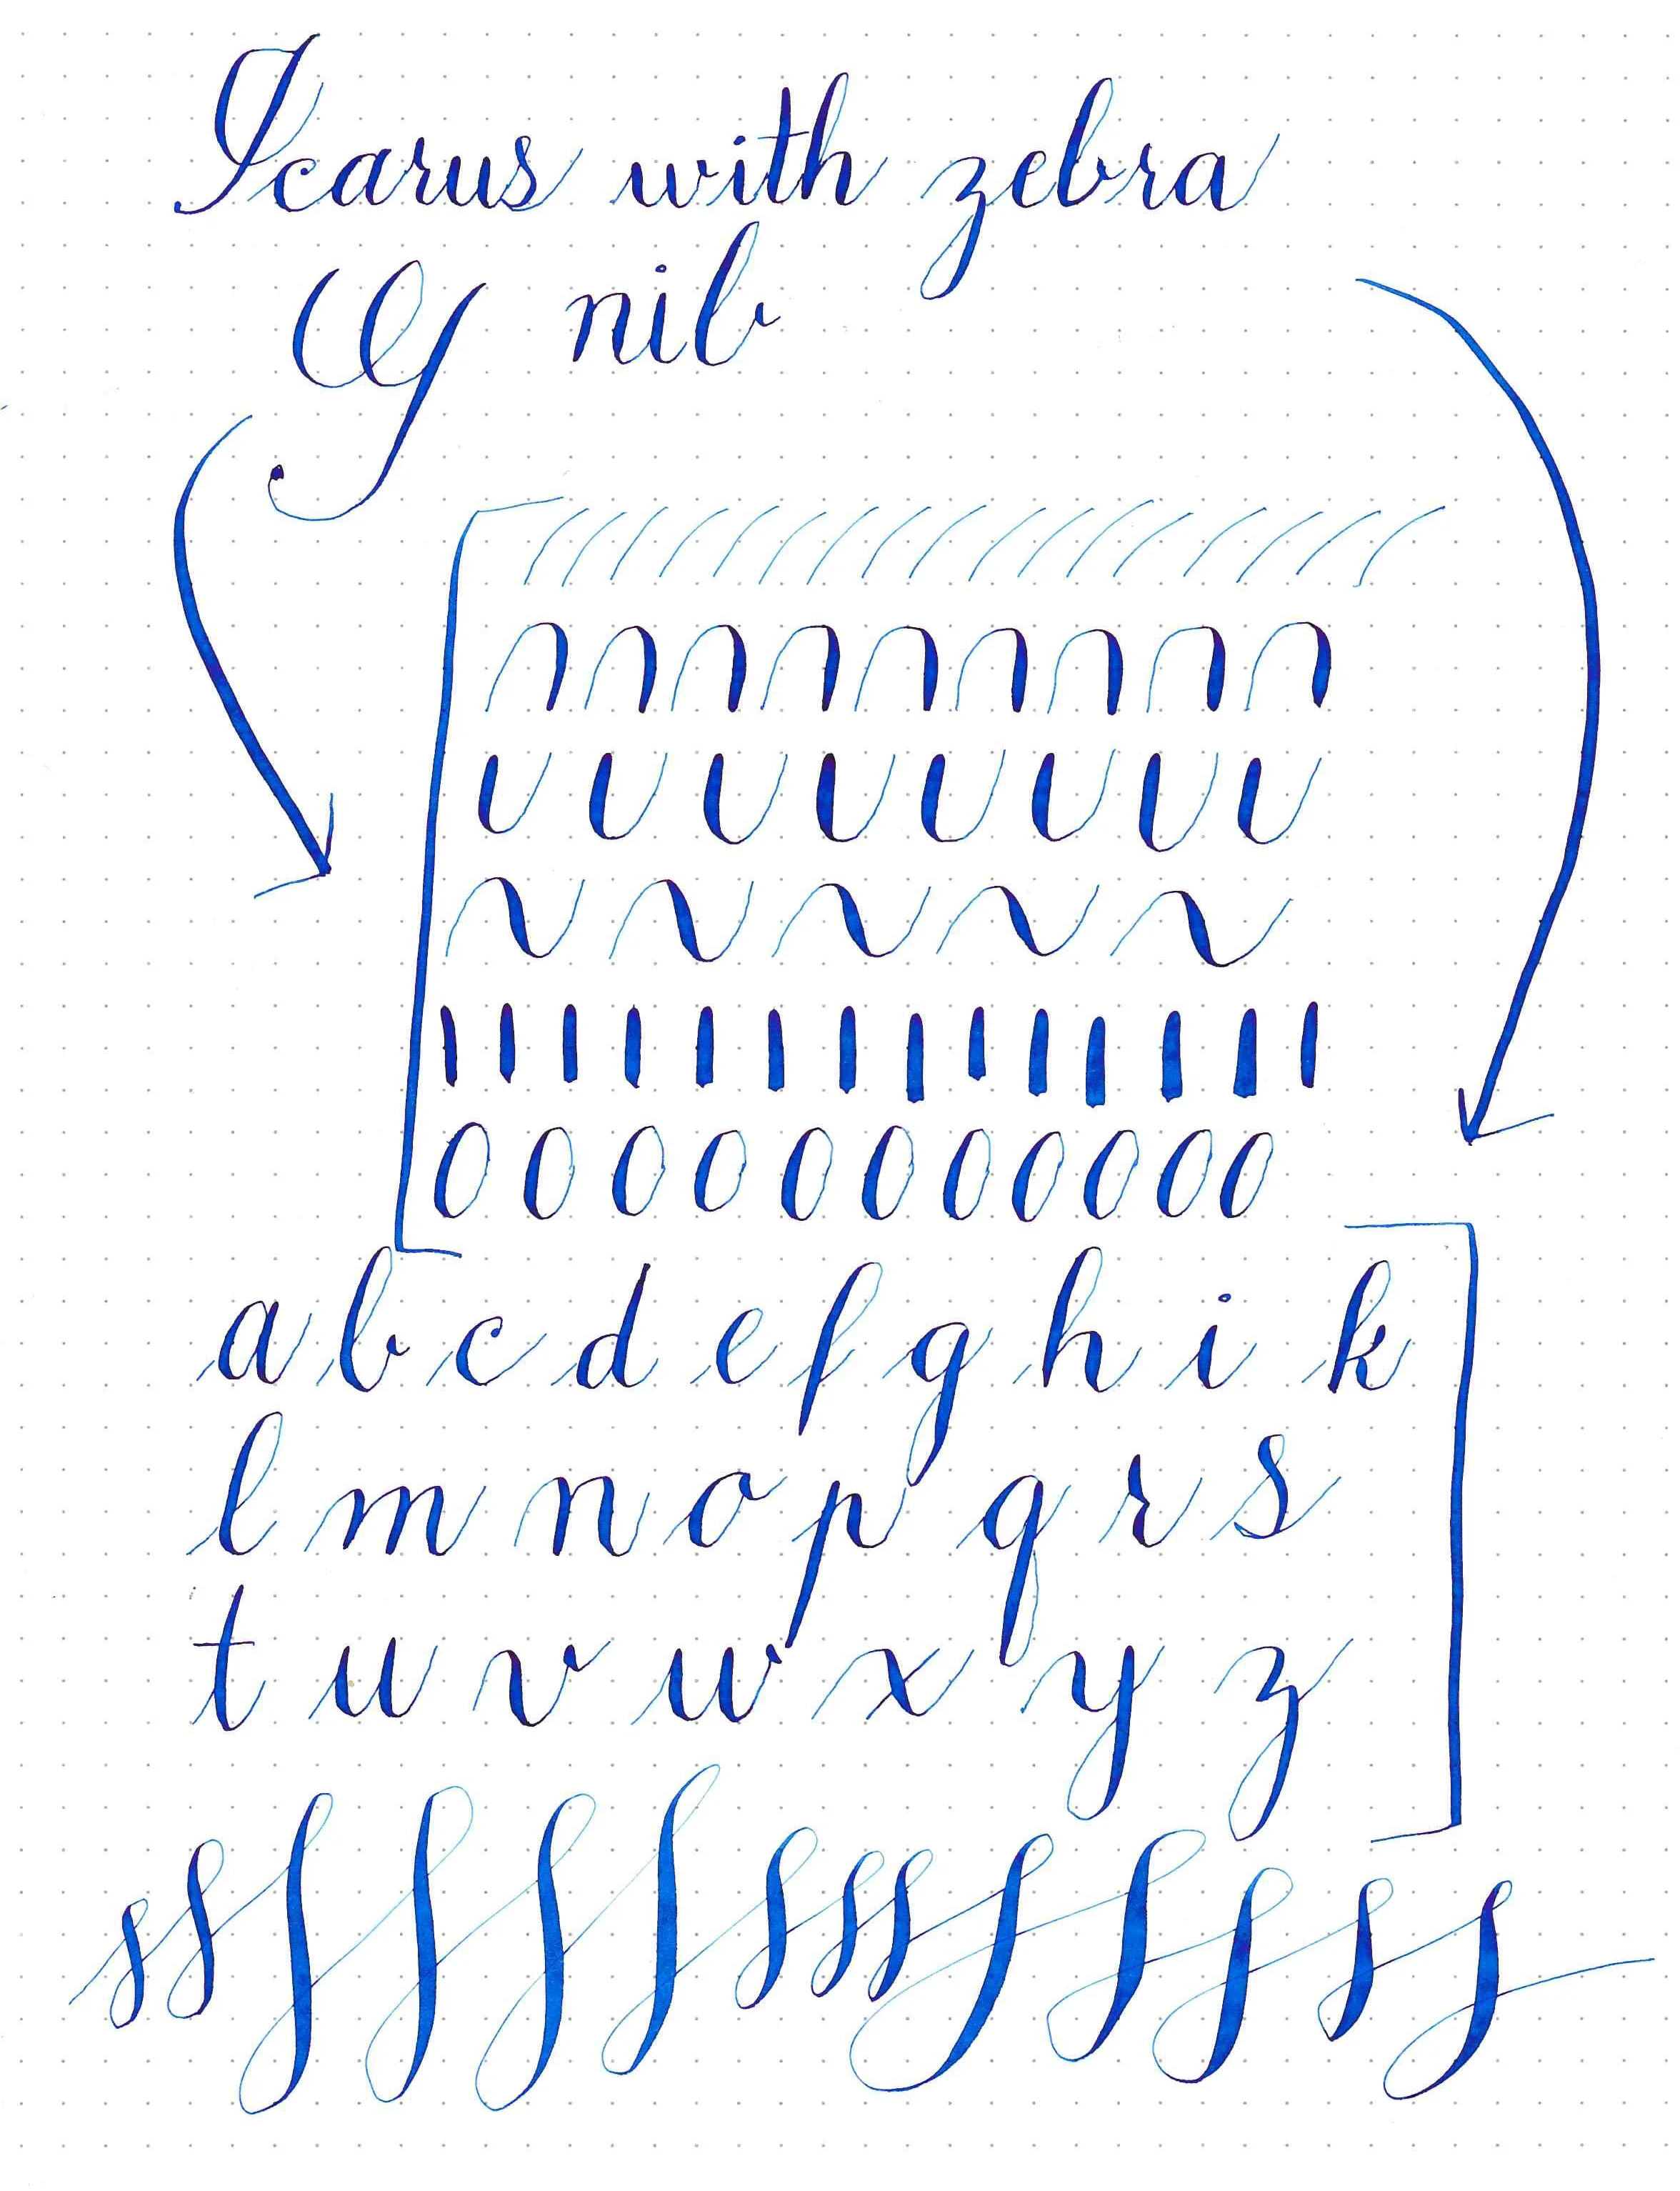 Icarus with zebra
G nib
a b c d e f g h i k
l m n o p q r s
t u v w x y z